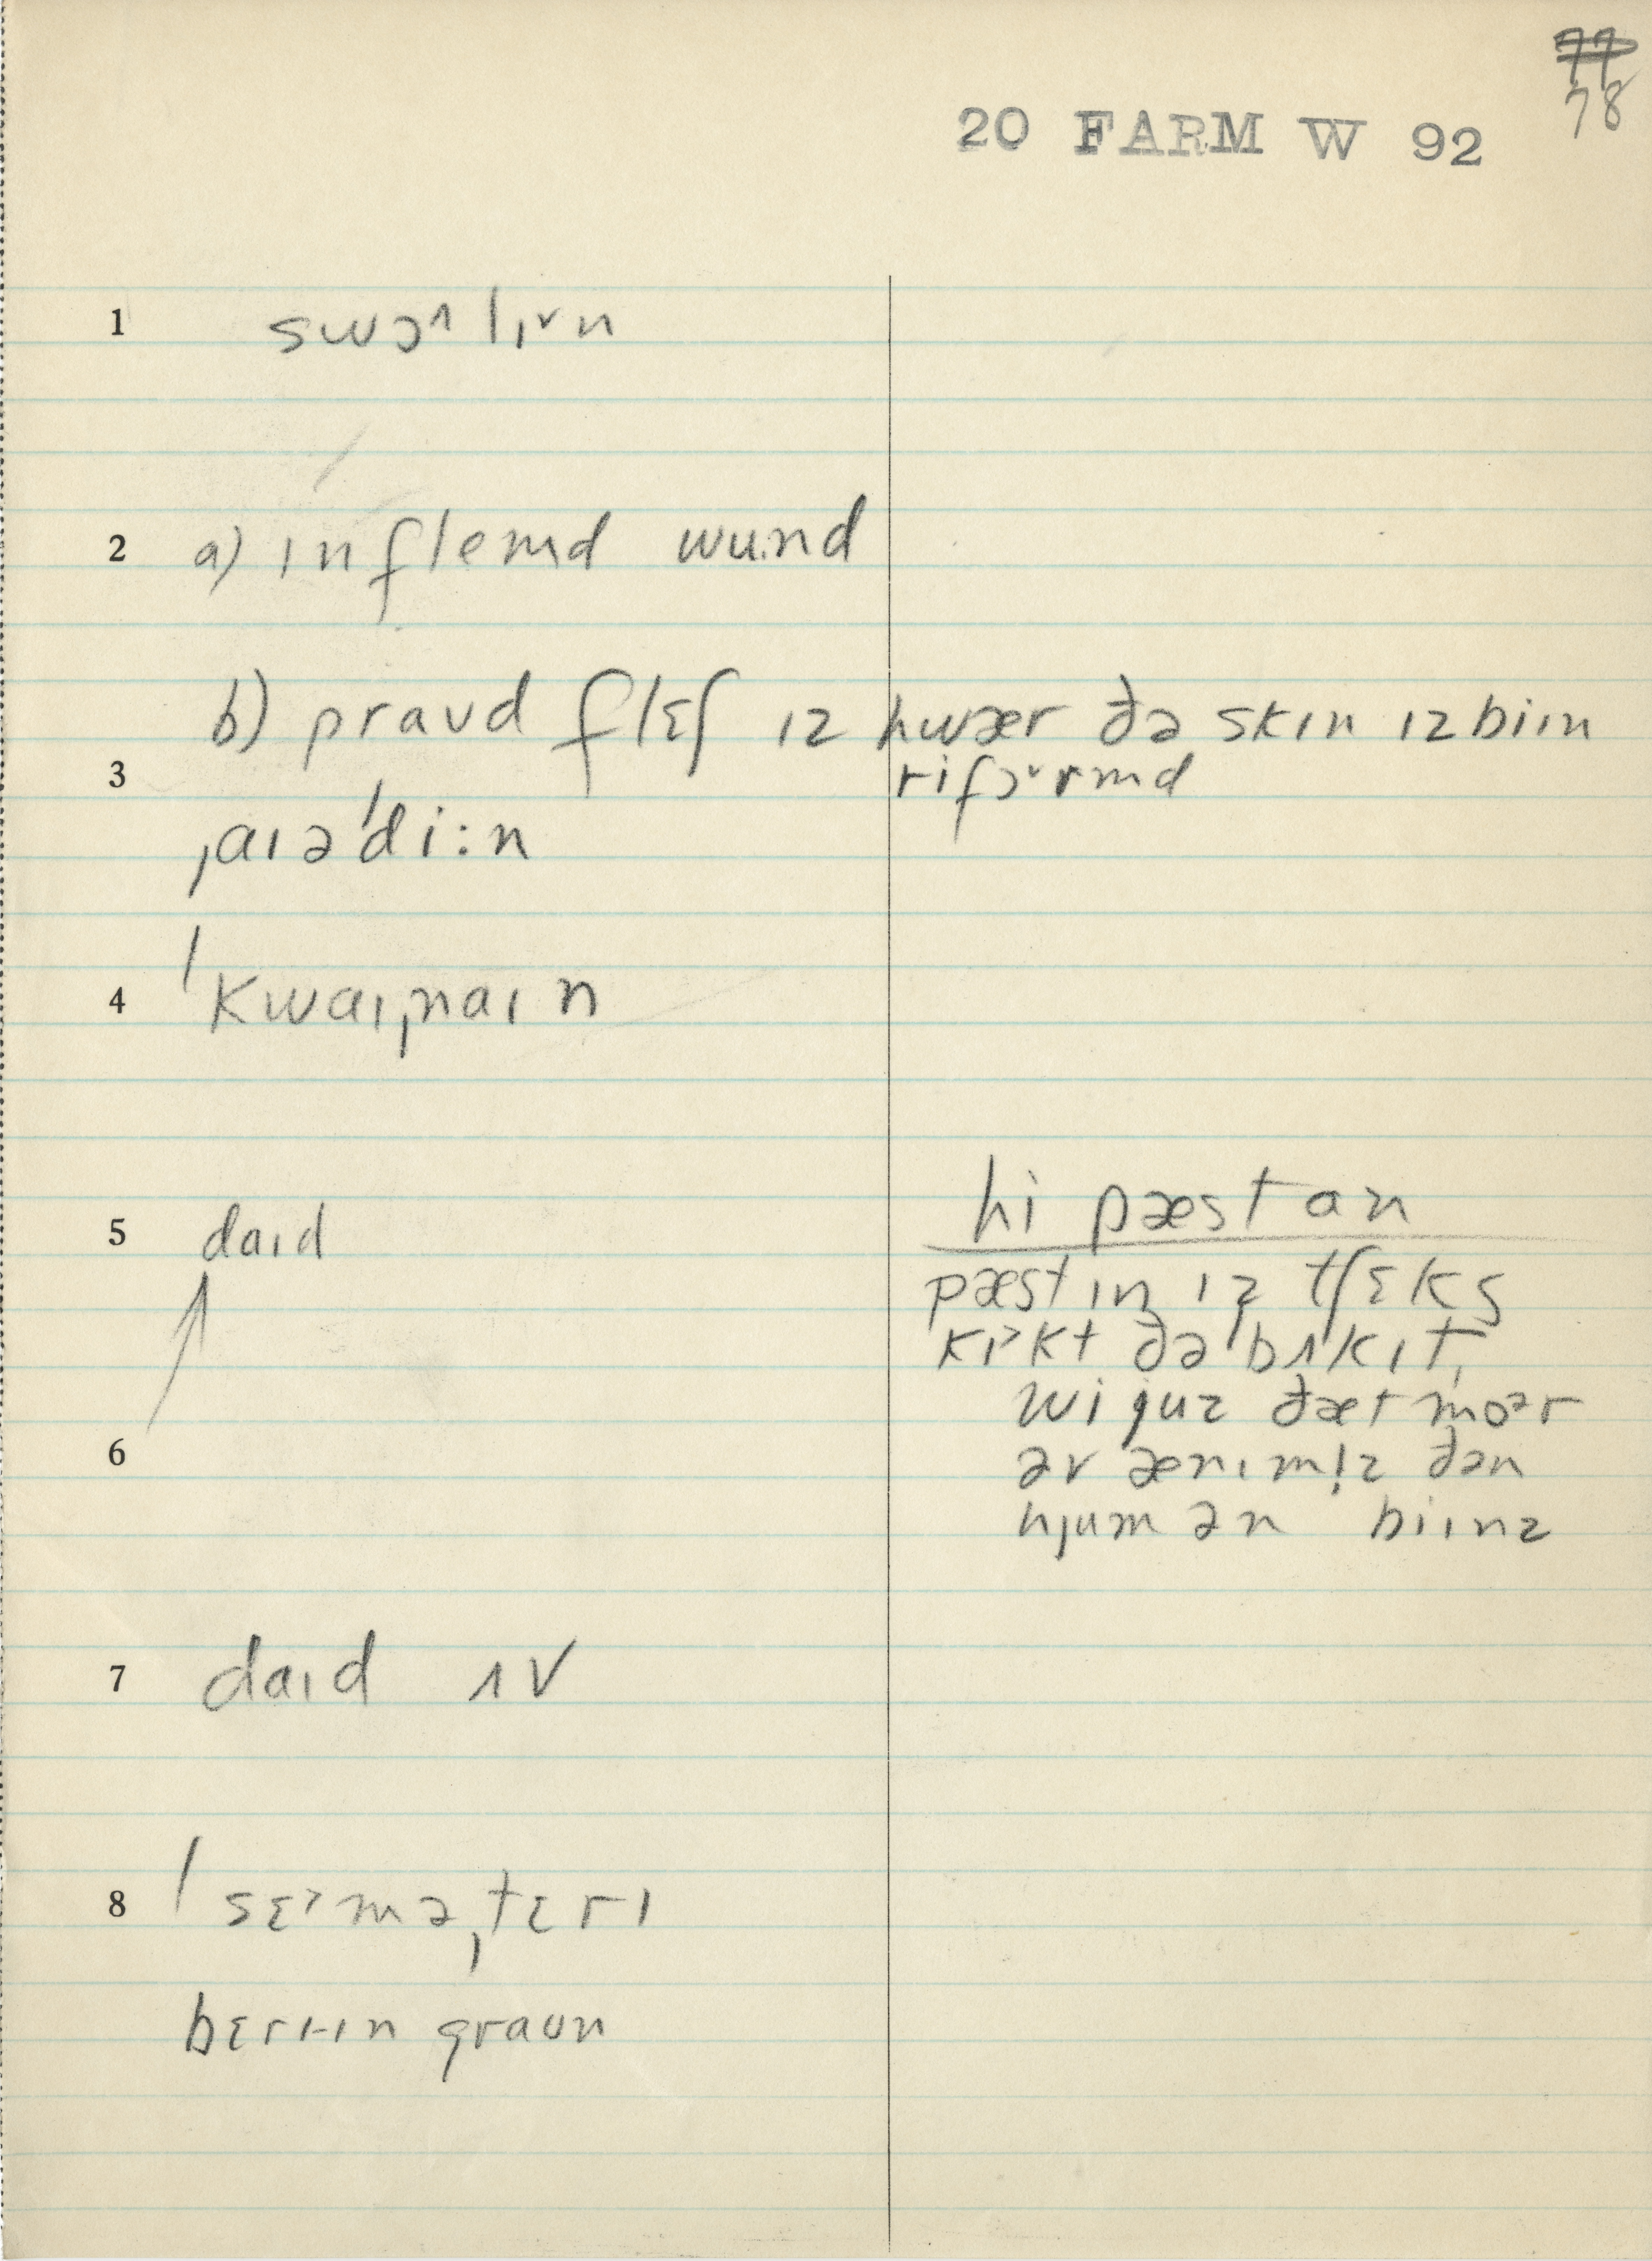 77
78
20 FARM W 92
1 swɔ˄lɪ˅n
2 a) ɪnflemd wu.nd
b) praud flɛʃ ɪz hwær ðə skɪn ɪz biɪn
rifɔ˅rmd
3
ˌaɪəˈdi:n
4 ˈkwaɪˌnaɪn
hi pæst an
5 daɪd
pæst ɪn ɪz tʃɛks
kɪ˃kt ðə bʌkɪt,
wi juz ðæt moər
6
əv ænɪml̩z ðən
hjumən biɪnz
7 daɪd ʌv
8 ˈsɛ˃məˌtɛrɪ
bɛrɪ-ɪn graun